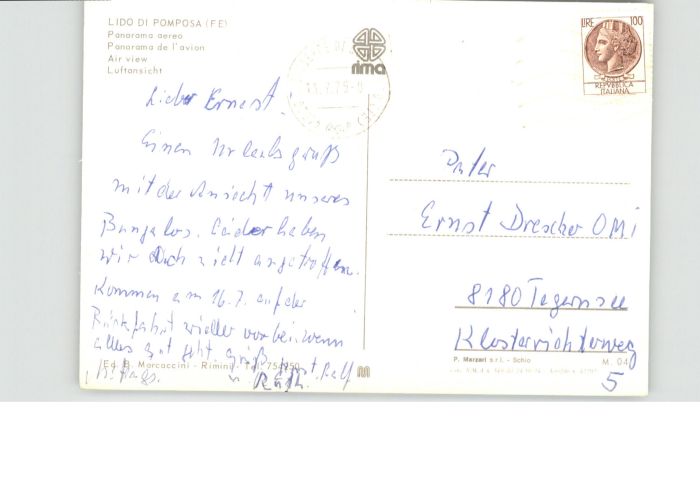 LIDO DI POMPOSA (FE)
Panorama aereo
Panorama de l'avion
Air view
Luftansicht
rima
LIRE 100
REPVBBLICA
ITALIANA
Lieber Ernest!
Einen Urlaubsgruß
mit der Ansicht unseres
Bungalos. Leider haben
wir Dich nicht angetroffen.
Kommen am 16.7. auf der
Rückfahrt wieder vorbei, wenn
alles gut geht. Grüß
Ralf
Ruth.
Pater
Ernst Drescher OMI
8180 Tegernsee
Klosterrichterweg
5
Ed. B. Marcaccini - Rimini - Tel. 754250
P. Marzari s.r.l. - Schio
M. 04